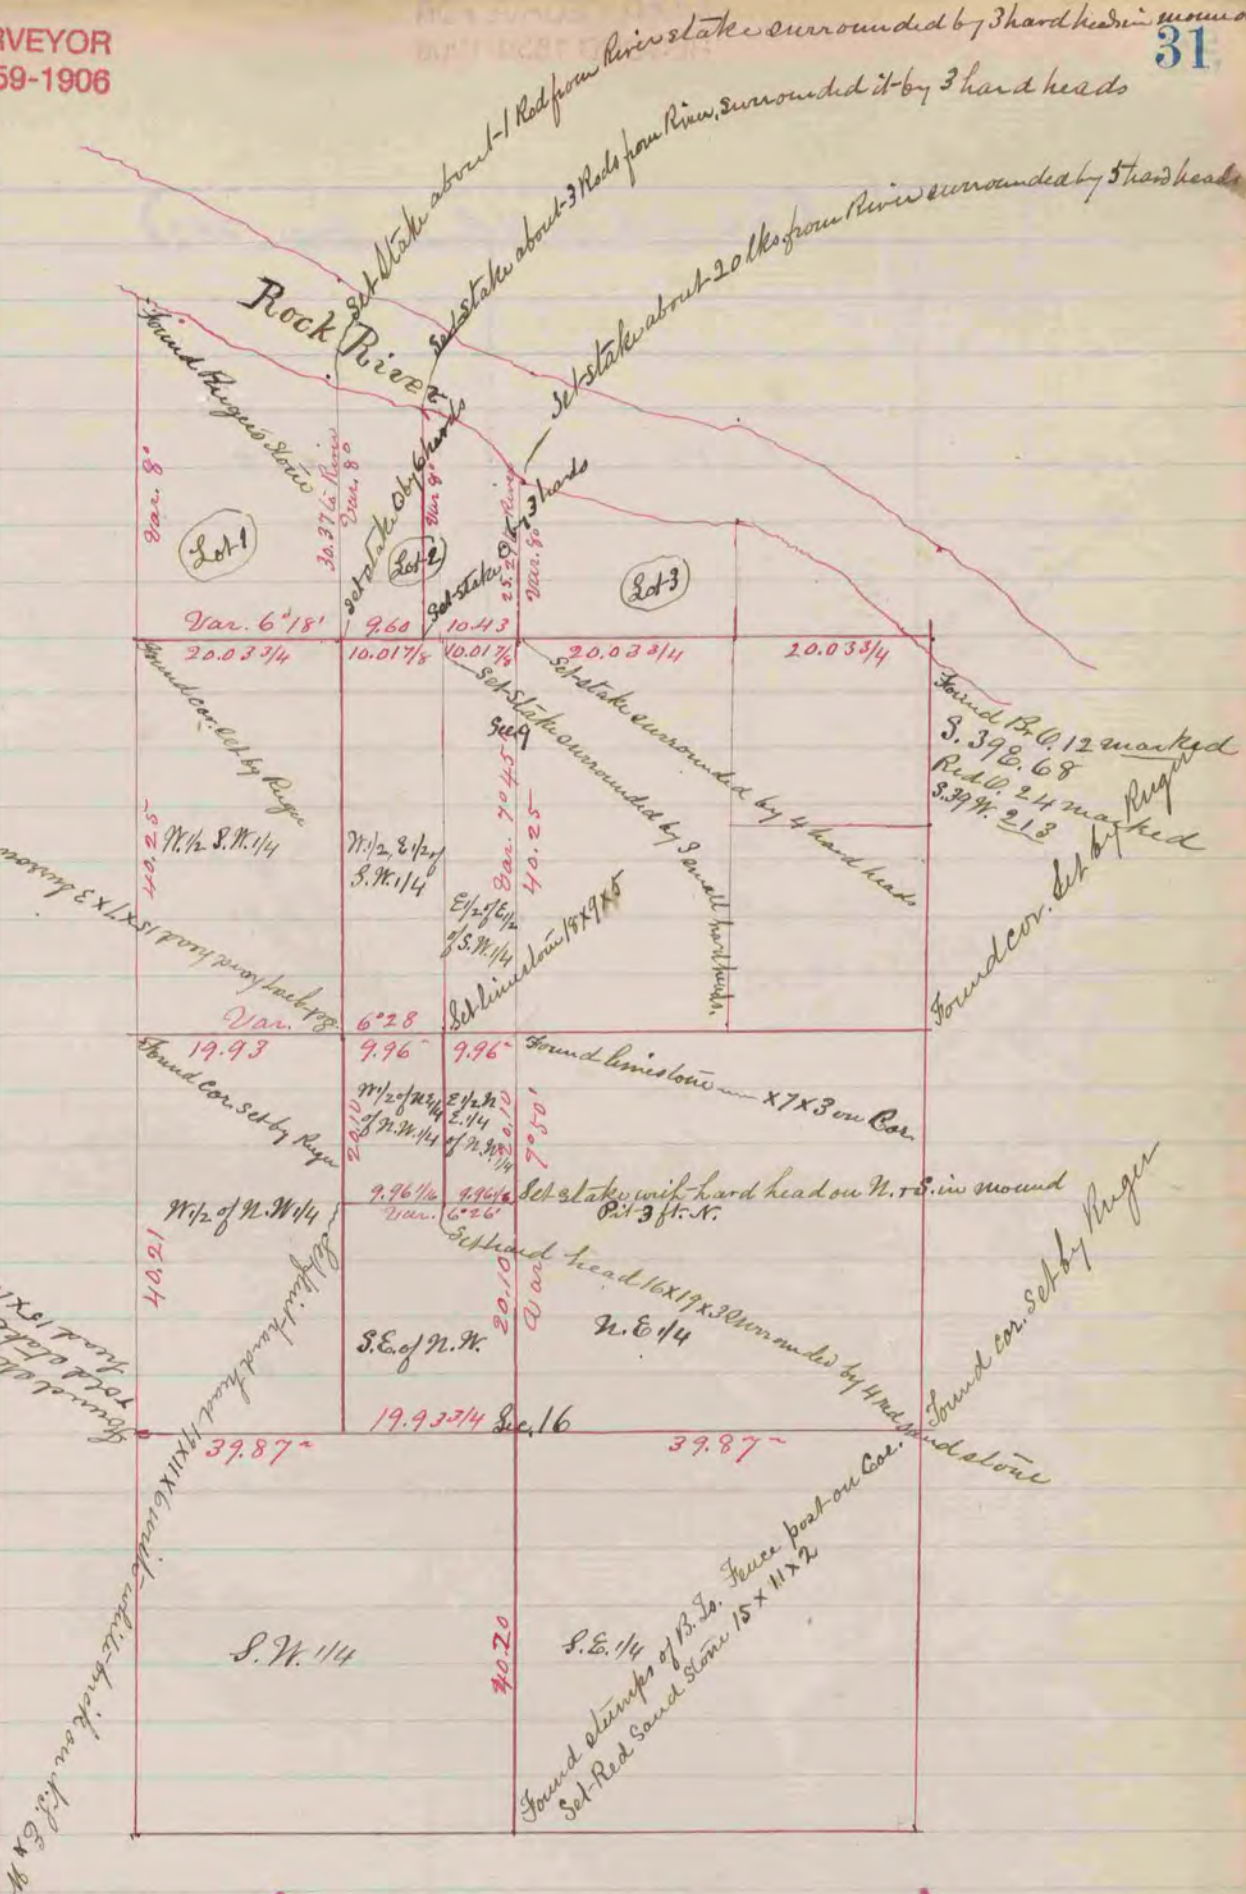 RVEYOR
59-1906
31
Set Stake about 1 Rod from River stake surrounded by 3 hard heads in mound
Set stake about 3 Rods from River, surrounded it by 3 hard heads
Set stake about 20 lks from River surrounded by 5 hard heads
Rock River
Found Ruger's stone
Var. 8°
30.37 to River
Var. 8°
Set stake by 6 hards
Var 8°
Set stake by 3 hards
25.29 River
Var. 8°
Lot 1
Lot 2
Lot 3
Var. 6°18'
9.60
10.43
20.03 3/4
10.01 7/8
10.01 7/8
20.03 3/4
20.03 3/4
Found cor. set by Ruger
Set stake surrounded by 3 small hard heads.
Set stake surrounded by 4 hard heads
Found B. O. 12 marked
S. 39 E. 68
Red O. 24 marked
S. 39 W. 213
Found cor. Set by Ruger
Sec 9
Var. 7°45'
40.25
40.25
W. 1/2 S.W. 1/4
W. 1/2, E 1/2 of
S.W. 1/4
E 1/2 of E 1/2
of S.W. 1/4
Set limestone 18x9x5
Set hard head 15x7x3
Var. 6°28
19.93
9.96
9.96
Found limestone x7x3 on Cor.
Found cor. set by Ruger
20.10
W 1/2 of N E 1/4
of N.W. 1/4
E 1/2 N
E. 1/4
of N.W. 1/4
20.10
7°50'
9.96 1/16
9.96 1/16
Set stake with hard head on N. & S. in mound
Pit 3 ft. N.
Var. 6°26'
W. 1/2 of N.W 1/4
40.21
Set hard head 16x19x3 surrounded by 4 red sand stone
Set flint hard head 17x11x6 with white brick on N.S.E & W
20.10
Var
S.E. of N.W.
N.E 1/4
Found cor. Set by Ruger
Found
old stake
head 15x1
19.93 3/4
Sec. 16
39.87
39.87
S.W. 1/4
40.20
S.E. 1/4
Found stumps of B. Ts. Fence post on Cor.
Set Red Sand Stone 15 x 11 x 2